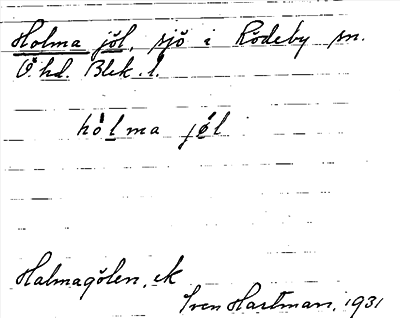 Holma jöl, sjö i Rödeby sn.
Ö. hd. Blek. l.
hòlma jøl
Halmagölen, ek
Sven Hartman, 1931